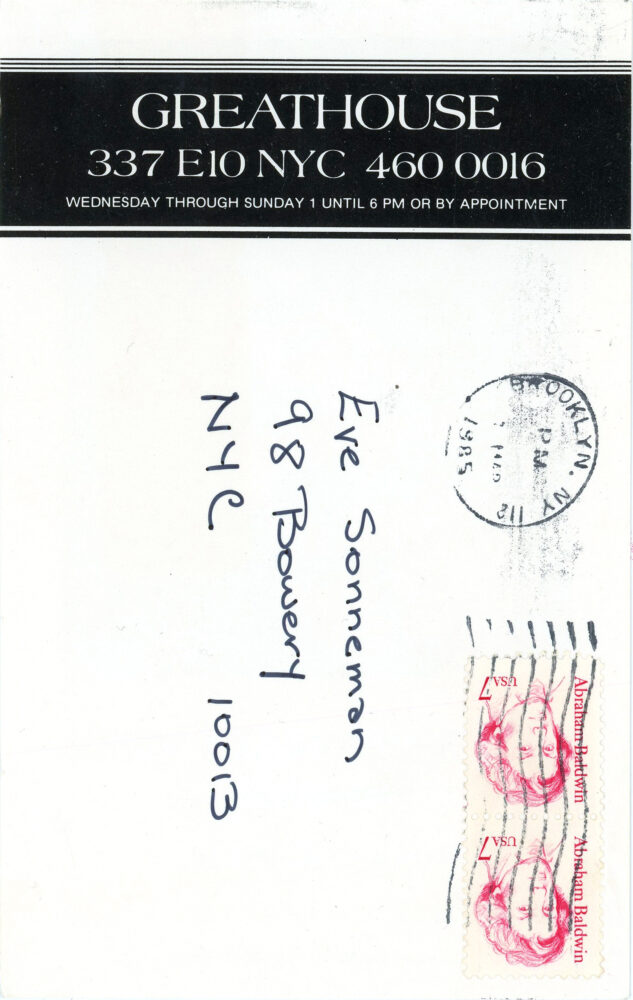 GREATHOUSE
337 E10 NYC 460 0016
WEDNESDAY THROUGH SUNDAY 1 UNTIL 6 PM OR BY APPOINTMENT
Eve Sonneman
98 Bowery
NYC 10013
BROOKLYN, NY 112
PM
1985
Abraham Baldwin
USA 7
Abraham Baldwin
USA 7